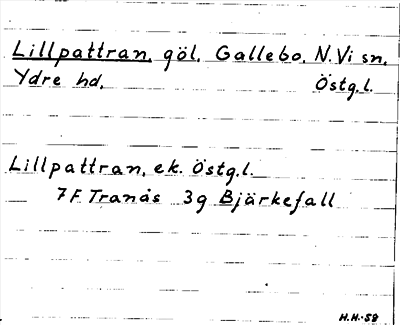 Lillpattran, göl. Gallebo, N. Vi sn,
Ydre hd. Östg.l.
Lillpattran, ek. Östg.l.
7F Tranås 3g Bjärkefall
H.H.-58